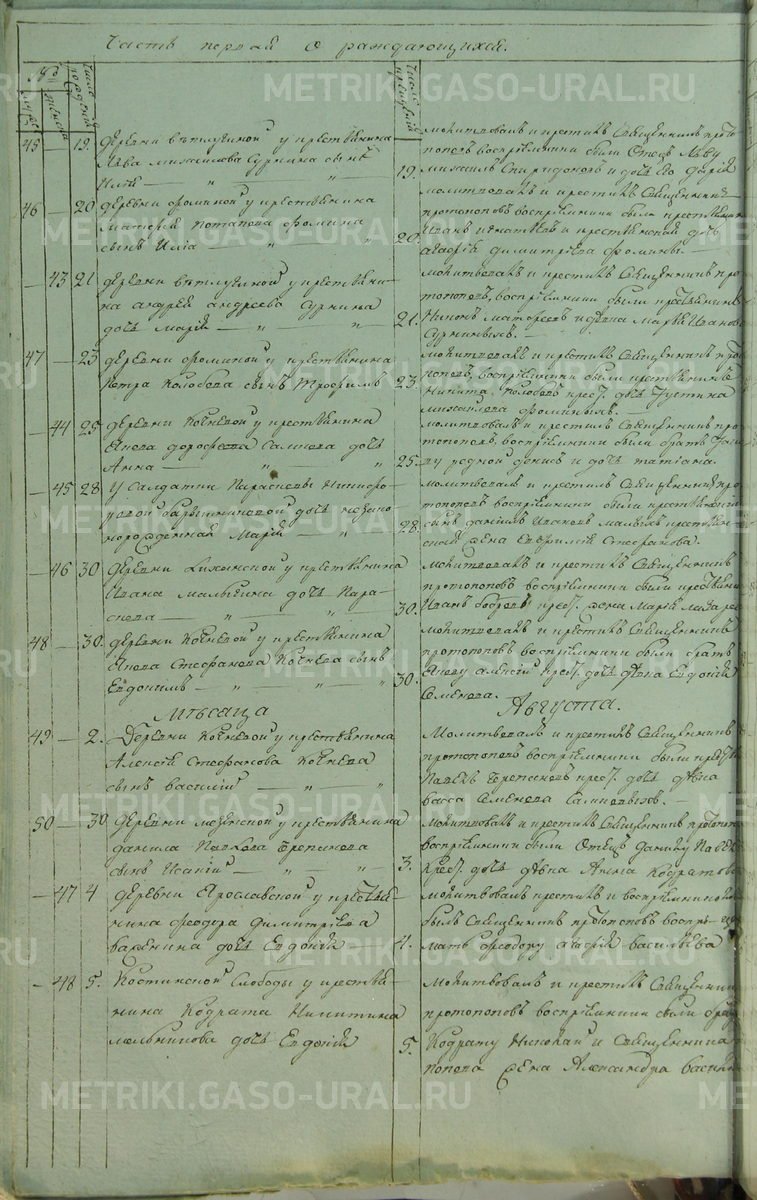 Часть первая о раждающихся.
№
мужеска
женска
Число рожденій
Число крещеній
45 — 19. деревни вѣтлугиной у крестьянина
Льва михаилова Сурнина сынъ
Илія — " — "
19.
молитвовалъ и крестилъ Священникъ прото
поповъ воспріемники были Отецъ Льву
михаилъ Спиридоновъ и дочь Его дарья
46 — 20 деревни фоминой у крестьянина
Матфея потапова фомина
сынъ Илія — " — "
20.
молитвовалъ и крестилъ Священникъ
протопоповъ воспріемники были крестьянинъ
Иванъ игнатьевъ и крестьянская дочь
агафья димитріева фомины —
— 43 21 деревни вѣтлугиной у крестьяни
на андрея андреева Сурнина
дочь марія — " — "
21.
молитвовалъ и крестилъ Священникъ про
топоповъ, воспріемники были крестьянинъ
матвеевъ и дѣвка марья Иванова
Сурнины. —
47 — 23 деревни фоминой у крестьянина
петра Колобова сынъ Трофимъ
23.
молитвовалъ и крестилъ Священникъ прото
поповъ, воспріемники были крестьянинъ
Никита Колобовъ крест. дочь Устина
михаилова фоминыхъ. —
— 44 25 деревни Кочневой у крестьянина
Якова дорофеева Салкова дочь
Анна — " — "
25.
молитвовалъ и крестилъ Священникъ про
топоповъ, воспріемники были братъ Яко
ву родной денисъ и дочь татіана.
— 45 28 У Салдатки Параскевы Никифо
ровой дочь незако
норожденная Марія — "
28.
молитвовалъ и крестилъ Священникъ про
топоповъ воспріемники были крестьянскій
сынъ даніилъ Ивановъ малыхъ крестьян
ская жена Стефанова.
— 46 30 деревни у крестьянина
Ивана малыгина дочь Пара
скева — " — "
30.
Молитвовалъ и крестилъ Священникъ
протопоповъ воспріемники были крестьянинъ
Иванъ бобровъ крест. жена Марія
48 — 30. деревни Кочневой у крестьянина
Якова Стефанова Кочнева сынъ
Евдокимъ — " — " — "
30.
молитвовалъ и крестилъ Священникъ
протопоповъ воспріемники были братъ
Якову алексій крест. дочь дѣвка Евдокія
Семенова.
Мѣсяца Августа.
49 — 2. Деревни Кочневой у крестьянина
Алексія Стефанова Кочнева
сынъ василій — " — "
Молитвовалъ и крестилъ Священникъ
протопоповъ воспріемники были крест.
Павелъ Берсеневъ крест. дочь дѣвка
васса Семенова
50 — 30. деревни у крестьянина
данила Павлова Берсенева
сынъ Исакій — " — "
3.
Молитвовалъ и крестилъ Священникъ протопоповъ
воспріемники были Отецъ данилу Павелъ
крест. дочь дѣвка Анна Кодратова
— 47 4 деревни Ярославской у крестья
нина феодора димитріева
важенина дочь Евдокія —
4.
молитвовалъ крестилъ и воспріемникомъ
былъ Священникъ протопоповъ
мать феодору василіева
— 48 5. Костинской Слободы у крестья
нина Кодрата Никитина
мельникова дочь Евдокія
5.
Молитвовалъ и крестилъ Священникъ
протопоповъ воспріемники были братъ
Кодрату Николай и Священника
попова жена Александра
METRIKI.GASO-URAL.RU